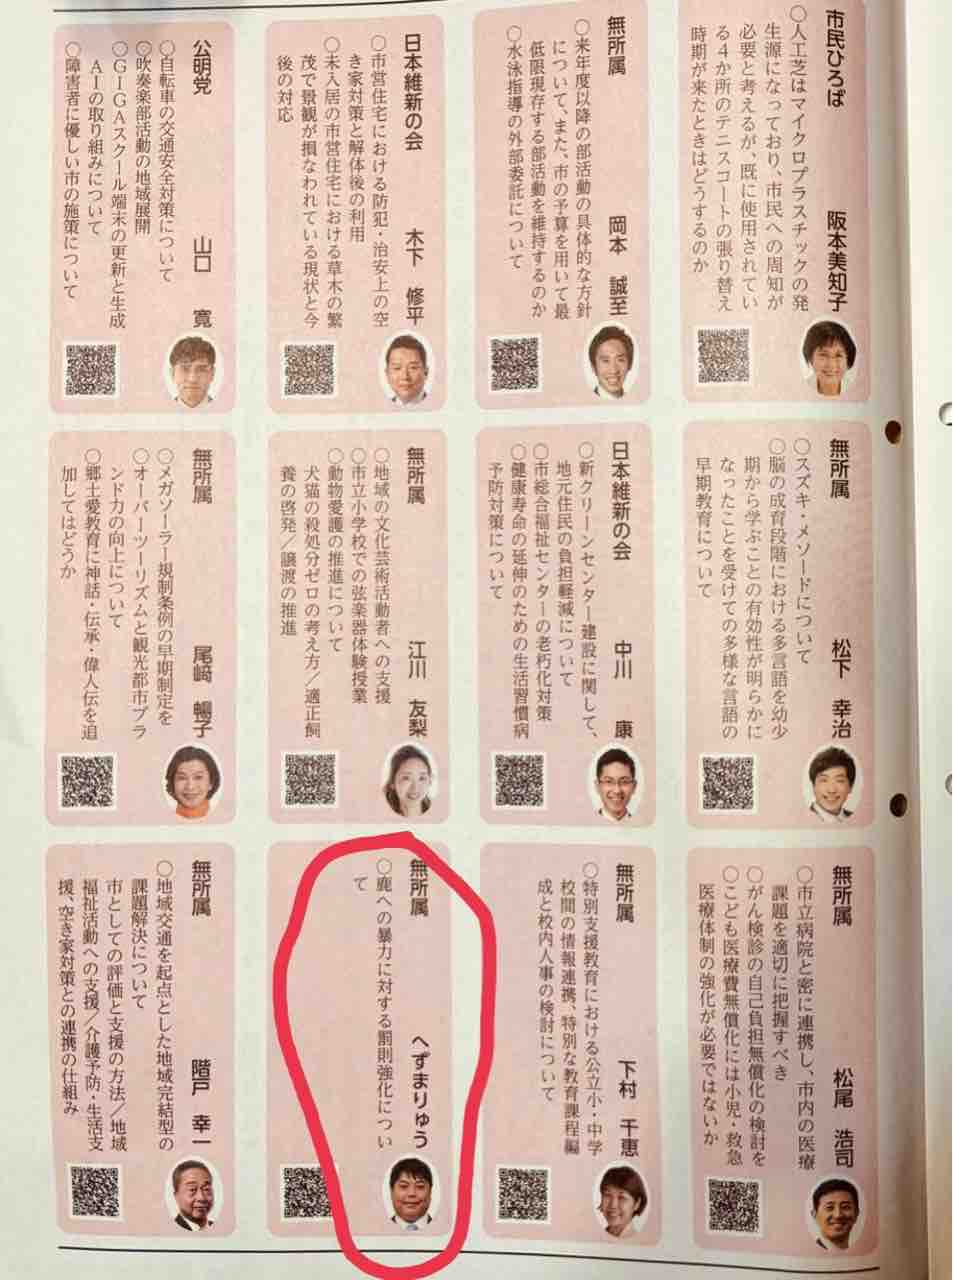 市民ひろば　阪本美知子
○人工芝はマイクロプラスチックの発
生源になっており、市民への周知が
必要と考えるが、既に使用されてい
る４か所のテニスコートの張り替え
時期が来たときはどうするのか
無所属　岡本　誠至
○米年度以降の部活動の具体的な方針
について、また、市の予算を用いて最
低限現存する部活動を維持するのか
○水泳指導の外部委託について
日本維新の会　木下　修平
○市営住宅における防犯・治安上の空
き家対策と解体後の利用
○未入居の市営住宅における草木の繁
茂で景観が損なわれている現状と今
後の対応
公明党　山口　寛
○自転車の交通安全対策について
○吹奏楽部活動の地域展開
○ＧＩＧＡスクール端末の更新と生成
ＡＩの取り組みについて
○障害者に優しい市の施策について
無所属　松下　幸治
○スズキ・メソードについて
○脳の成育段階における多言語を幼少
期から学ぶことの有効性が明らかに
なったことを受けての多様な言語の
早期教育について
日本維新の会　中川　康
○新クリーンセンター建設に関して、
地元住民の負担軽減について
○市総合福祉センターの老朽化対策
○健康寿命の延伸のための生活習慣病
予防対策について
無所属　江川　友梨
○地域の文化芸術活動者への支援
○市立小学校での弦楽器体験授業
○動物愛護の推進について
犬猫の殺処分ゼロの考え方／適正飼
養の啓発／譲渡の推進
無所属　尾﨑　暢子
○メガソーラー規制条例の早期制定を
○オーバーツーリズムと観光都市ブラ
ンド力の向上について
○郷土愛教育に神話・伝承・偉人伝を追
加してはどうか
無所属　松尾　浩司
○市立病院と密に連携し、市内の医療
課題を適切に把握すべき
○がん検診の自己負担無償化の検討を
○こども医療費無償化には小児・救急
医療体制の強化が必要ではないか
無所属　下村　千恵
○特別支援教育における公立小・中学
校間の情報連携、特別な教育課程編
成と校内人事の検討について
無所属　へずまりゅう
○鹿への暴力に対する罰則強化につい
て
無所属　階戸　幸一
○地域交通を起点とした地域完結型の
課題解決について
市としての評価と支援の方法／地域
福祉活動への支援／介護予防・生活支
援、空き家対策との連携の仕組み